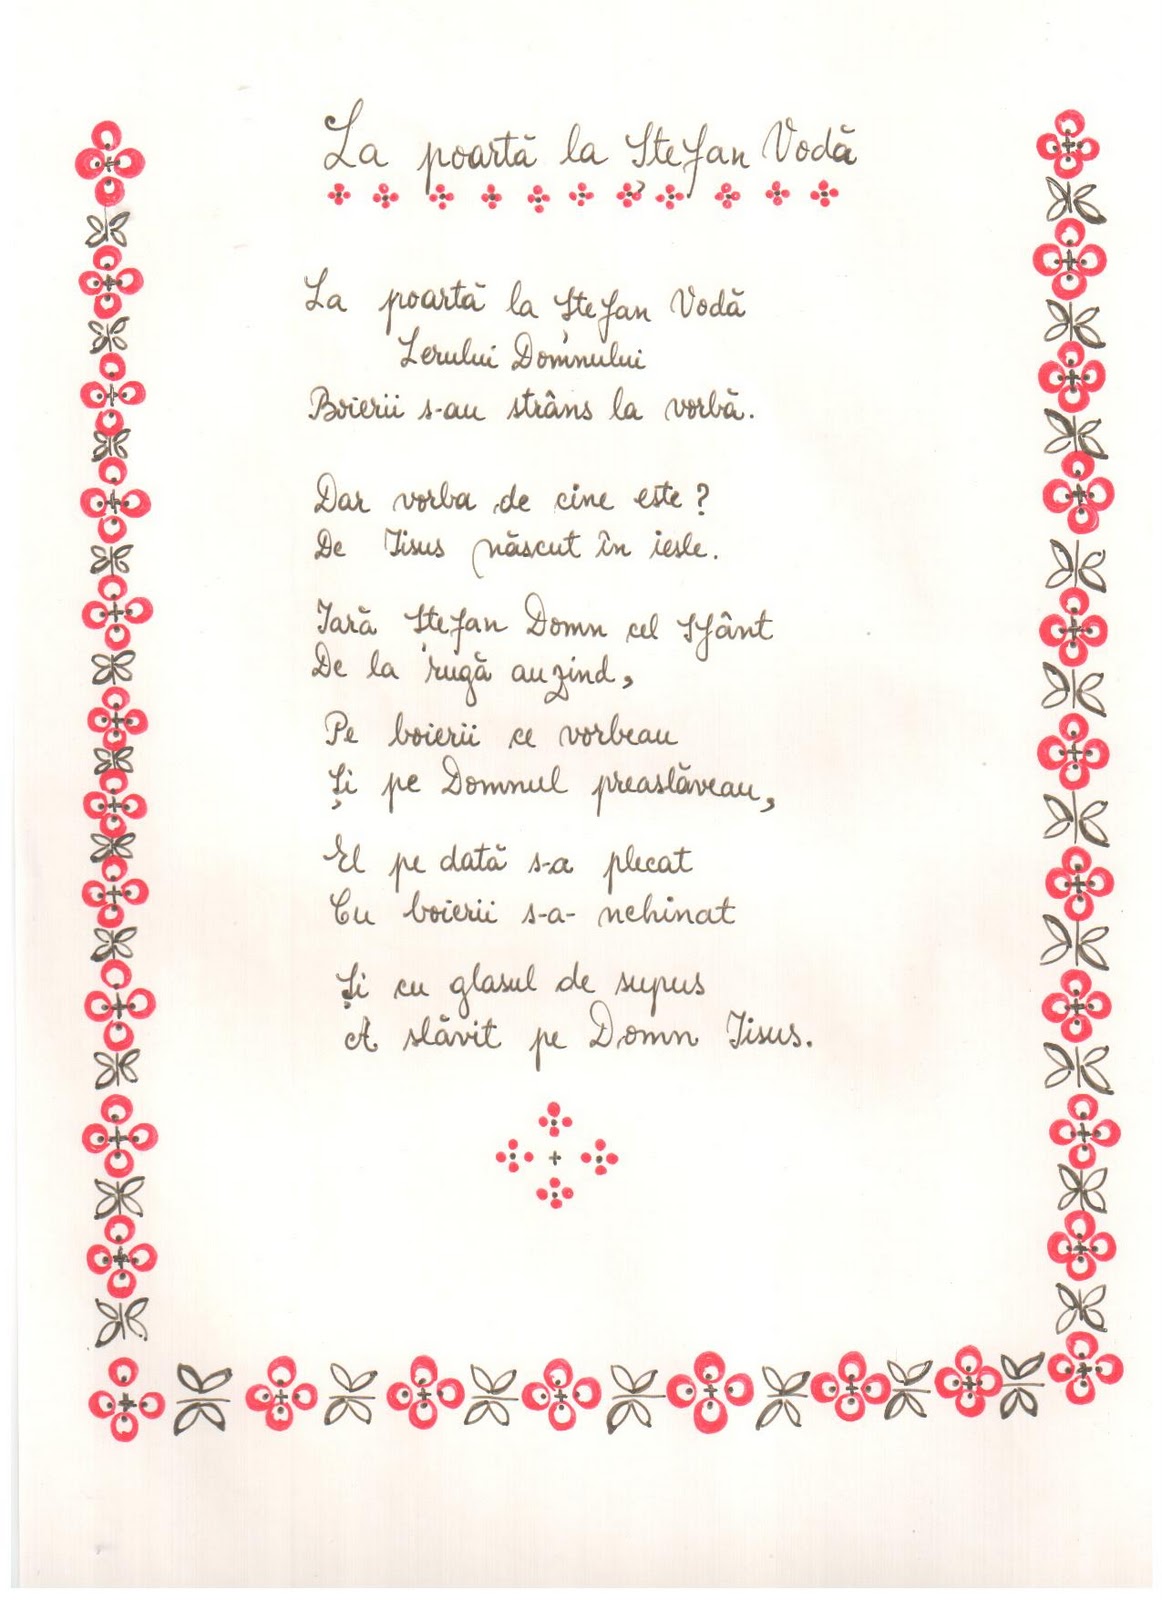 La poartă la Ștefan Vodă
La poartă la Ștefan Vodă
Lerului Domnului
Boierii s-au strâns la vorbă.
Dar vorba de cine este?
De Iisus născut în iesle.
Iară Ștefan Domn cel Sfânt
De la rugă auzind,
Pe boierii ce vorbeau
Și pe Domnul preaslăveau,
El pe dată s-a plecat
Cu boierii s-a- nchinat
Și cu glasul de supus
A slăvit pe Domn Iisus.